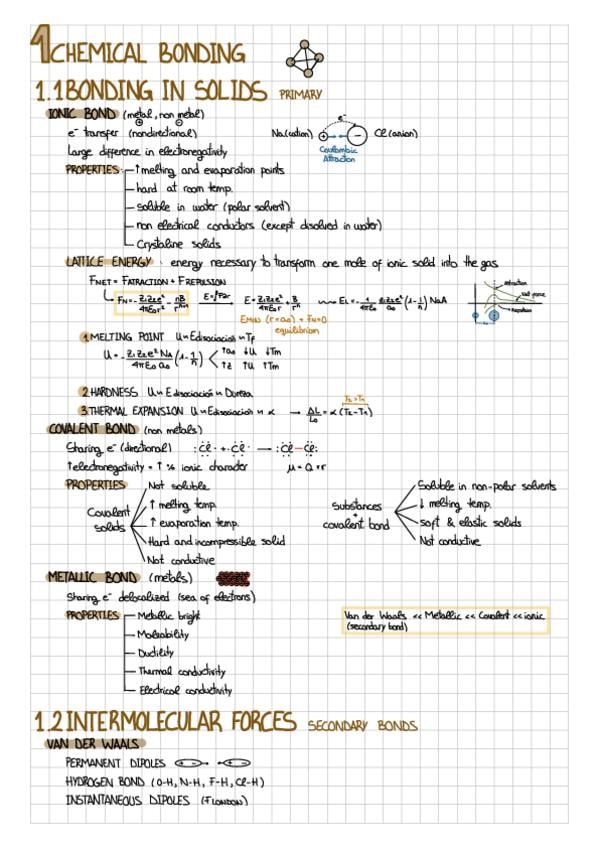 1 CHEMICAL BONDING
1.1 BONDING IN SOLIDS PRIMARY
IONIC BOND (metal, non metal)
⊕ ⊖
e⁻ transfer (nondirectional)
Na(cation) e⁻ Cl (anion)
Coulombic
Attraction
Large difference in electronegativity
PROPERTIES: ↑melting and evaporation points
hard at room temp.
soluble in water (polar solvent)
non electrical conductors (except disolved in water)
Crystaline solids
LATTICE ENERGY: energy necessary to transform one mole of ionic solid into the gas
FNET = FATRACTION + FREPULSION
Attraction
Net force
Repulsion
EMIN (r=a₀) → FN=0
equilibrium
1 MELTING POINT U∝Edisociación∝Tf
↑a₀ ↓U ↓Tm
↑z ↑U ↑Tm
2 HARDNESS U∝Edisociación∝Dureza
T₂>T₁
3 THERMAL EXPANSION U∝Edisociación∝α → ΔL/L₀ = α(T₂-T₁)
COVALENT BOND (non metals)
Sharing e⁻ (directional) :Cl· + ·Cl: → :Cl–Cl:
↑electronegativity = ↑ % ionic character μ = Q·r
PROPERTIES
Covalent
solids
Not soluble
↑ melting temp.
↑ evaporation temp.
Hard and incompressible solid
Not conductive
Substances
+
covalent bond
Soluble in non-polar solvents
↓ melting temp.
soft & elastic solids
Not conductive
METALLIC BOND (metals)
Sharing e⁻ delocalized (sea of electrons)
PROPERTIES Metallic bright
Maleability
Ductility
Thermal conductivity
Electrical conductivity
Van der Waals << Metallic << Covalent << ionic
(secondary bond)
1.2 INTERMOLECULAR FORCES SECONDARY BONDS
VAN DER WAALS
PERMANENT DIPOLES
HYDROGEN BOND (O-H, N-H, F-H, Cl-H)
INSTANTANEOUS DIPOLES (F LONDON)